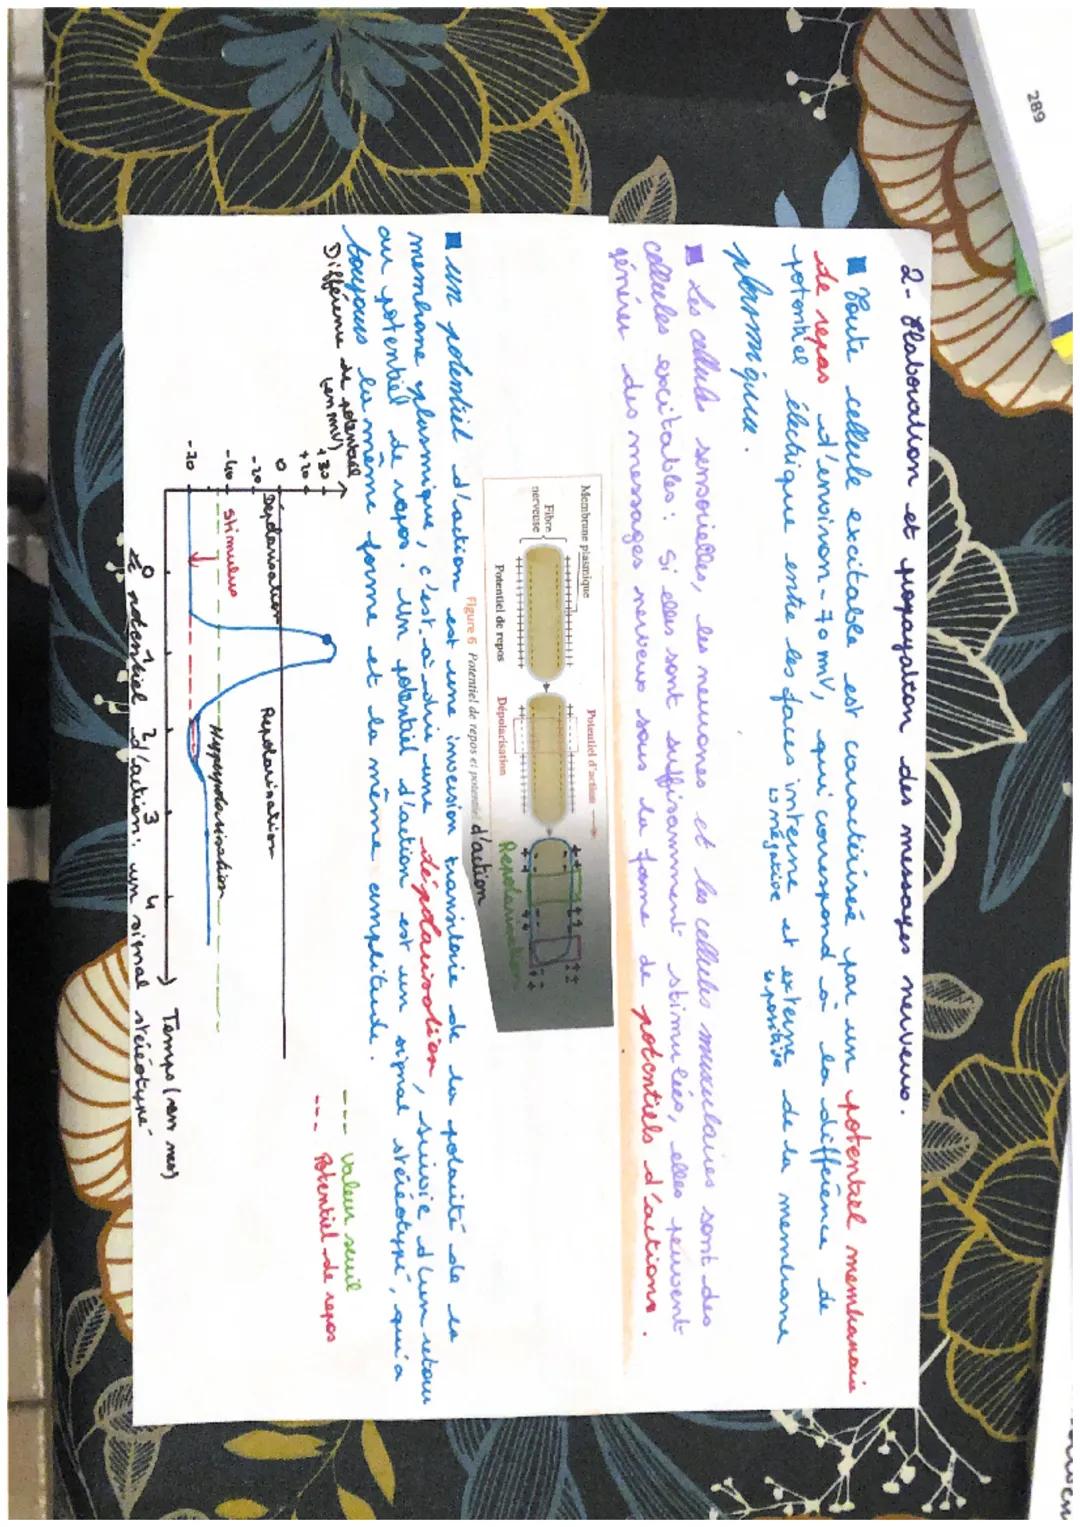 289
2- Elaboration et propagation des messages nerveux.
Toute cellule excitable est caractérisée par un potentiel membranaire
de repos d'environ -70 mV, qui correspond à la différence de
potentiel électrique entre les faces interne et externe de la membrane
↳ négative ↳ positive
plasmique.
Les cellules sensorielles, les neurones et les cellules musculaires sont des
cellules excitables : Si elles sont suffisamment stimulées, elles peuvent
générer des messages nerveux sous la forme de potentiels d'actions.
Membrane plasmique
Potentiel d'action
Fibre
nerveuse
Potentiel de repos
Dépolarisation
Repolarisation
Figure 6 Potentiel de repos et potentiel d'action
un potentiel d'action est une inversion transitoire de la polarité de la
membrane plasmique, c'est-à-dire une dépolarisation, suivie d'un retour
au potentiel de repos. Un potentiel d'action est un signal stéréotypé, qui a
toujours la même forme et la même amplitude.
Différence de potentiel
(en mV)
--- Valeur seuil
--- Potentiel de repos
+30
+20
0
-20
-40
-70
Dépolarisation
Repolarisation
stimulus
Hyperpolarisation
0 1 2 3 4
Temps (en ms)
potentiel d'action: un signal stéréotypé